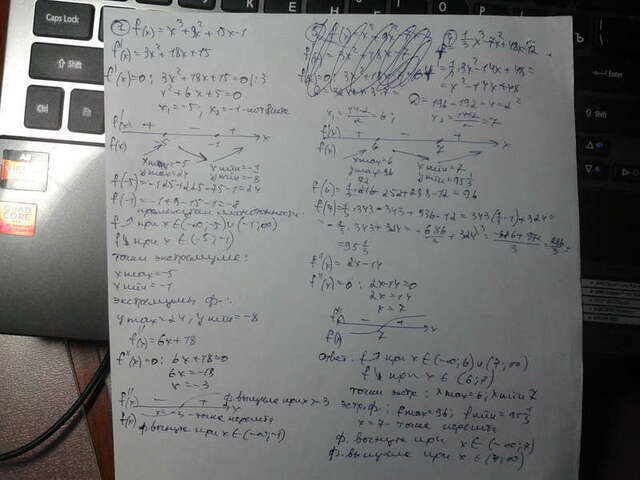 Caps Lock
Shift
Ctrl
Fn
Alt
QUAD
CORE
f(x) = x³ + 9x² + 15x - 1
f'(x) = 3x² + 18x + 15
f'(x) = 0 : 3x² + 18x + 15 = 0 | :3
x² + 6x + 5 = 0
x₁ = -5, x₂ = -1
f'(x) + - + x
f(x) -5 -1
xmax = -5 xmin = -1
ymax = 24 ymin = -8
f(-5) = -125 + 225 - 75 - 1 = 24
f(-1) = -1 + 9 - 15 - 1 = -8
промежутки монотонности:
f ↗ при x ∈ (-∞; -5) ∪ (-1; ∞)
f ↘ при x ∈ (-5; -1)
точки экстремума:
xmax = -5
xmin = -1
экстремумы ф-:
ymax = 24; ymin = -8
f''(x) = 6x + 18
f''(x) = 0 : 6x + 18 = 0
6x = -18
x = -3
ф. выпукла при x > 3
f'' - + x
f(x) x = -3 - точка перегиба
ф. вогнута при x ∈ (-∞; -1)
1/3 x³ - 7x² + 48x - 12
= 1/3 · 3x² - 14x + 48 =
= x² - 14x + 48
D = 196 - 192 = 4 = 2²
x₁ = (14-2)/2 = 6; x₂ = (14+2)/2 = 7
f'(x) + - + x
f(x) 6 7
xmax = 6 xmin = 7
ymax = 96 ymin = 95 1/3
f(6) = 1/3 · 216 - 252 + 288 - 12 = 96
f(7) = 1/3 · 343 - 343 + 336 - 12 = 343(1/3 - 1) + 324 =
= -2/3 · 343 + 324 = -686/3 + 324 = (-686 + 972)/3 = 286/3 =
= 95 1/3
f''(x) = 2x - 14
f''(x) = 0 ; 2x - 14 = 0
2x = 14
x = 7
f'' - + x
f(x) 7
Ответ: f ↗ при x ∈ (-∞; 6) ∪ (7; ∞)
f ↘ при x ∈ (6; 7)
точки экстр: xmax = 6; xmin = 7
экстр. ф: fmax = 96; fmin = 95 1/3
x = 7 - точка перегиба
ф. вогнута при x ∈ (-∞; 7)
ф. выпукла при x ∈ (7; ∞)